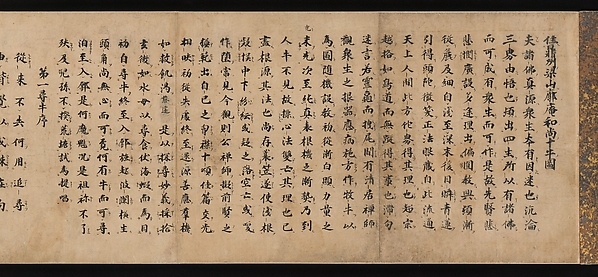 住鼎州梁山廓庵和尚十牛圖
夫諸佛真源衆生本有因迷也沉淪
三界由悟也頓出四生所以有諸佛
而可成有衆生而可作是故先賢悲
憫廣設多途理出偏圓教興頓漸
從麁及細自淺至深末後瞬青蓮
引得頭陀微笑正法眼藏自此流通
天上人間此方他界得其理也超宗
越格如鳥道而無蹤跡得其事也滯句
迷言若靈龜而曳尾間有清居禪師
觀衆生之根器應病施方作牧牛以
為圖隨機設教初從漸白顯力量之
未充次至純真表根機之漸熟乃到
人牛不見故標心法雙亡其理也已
盡根源其法也尚存莎笠遂使淺根
疑誤中下紛紜或疑之落空亡或喚
作墮常見今觀則公禪師擬前賢之
模範出自己之胸襟十頌佳篇交光
相映初從失處終至還源善應羣機
如救飢渴慈遠是以探尋妙義採拾
玄微如水母以尋食依海蝦而為目
初自尋牛終至入鄽強起波瀾橫生
頭角尚無心而可覓何有牛而可尋
洎至入鄽是何魔魅況是祖祢不了
殃及兒孫不揆荒唐試為提唱
第一尋牛序
從來不失何用追尋
由背覺以成疎在向